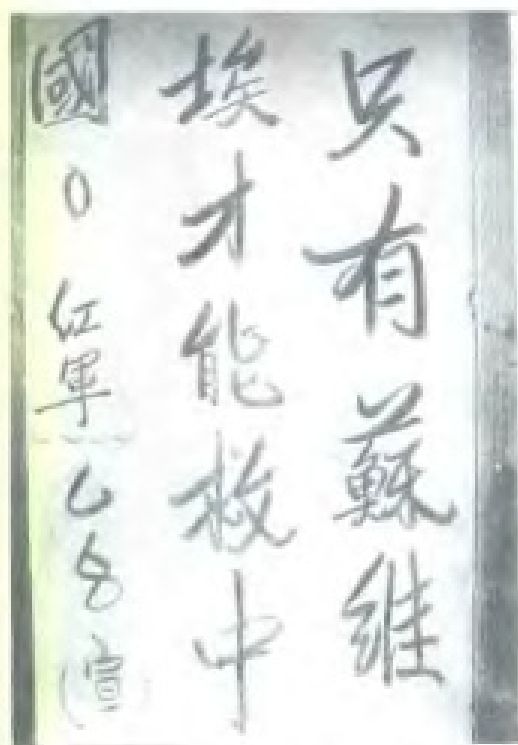 只有蘇維
埃才能救中
國○紅軍68(宣)